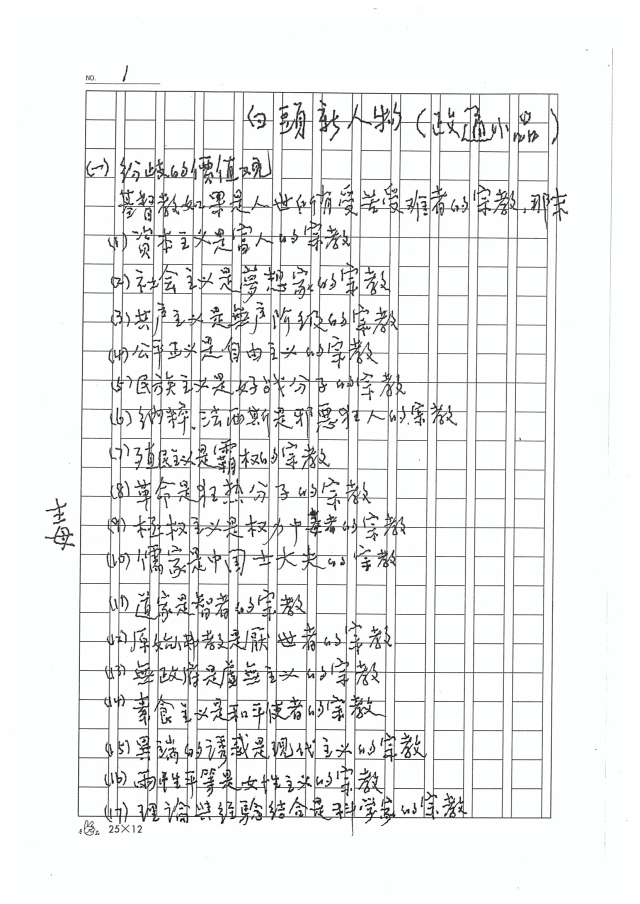 NO. 1
白頭新人物(政論小品)
(一)紛歧的價值观
基督教如果是人世所有受苦受难者的宗教,那末
(1)資本主义是富人的宗教
(2)社会主义是夢想家的宗教
(3)共产主义是無产阶级的宗教
(4)公平正义是自由主义的宗教
(5)民族主义是好战分子的宗教
(6)纳粹、法西斯是邪惡狂人的宗教
(7)殖民主义是霸权的宗教
(8)革命是狂热分子的宗教
(9)極权主义是权力中毒者的宗教
毒
(10)儒家是中国士大夫的宗教
(11)道家是智者的宗教
(12)原始佛教是厭世者的宗教
(13)無政府是虛無主义的宗教
(14)素食主义是和平使者的宗教
(15)異端的誘惑是现代主义的宗教
(16)兩性平等是女性主义的宗教
(17)理論與经驗结合是科学家的宗教
25×12